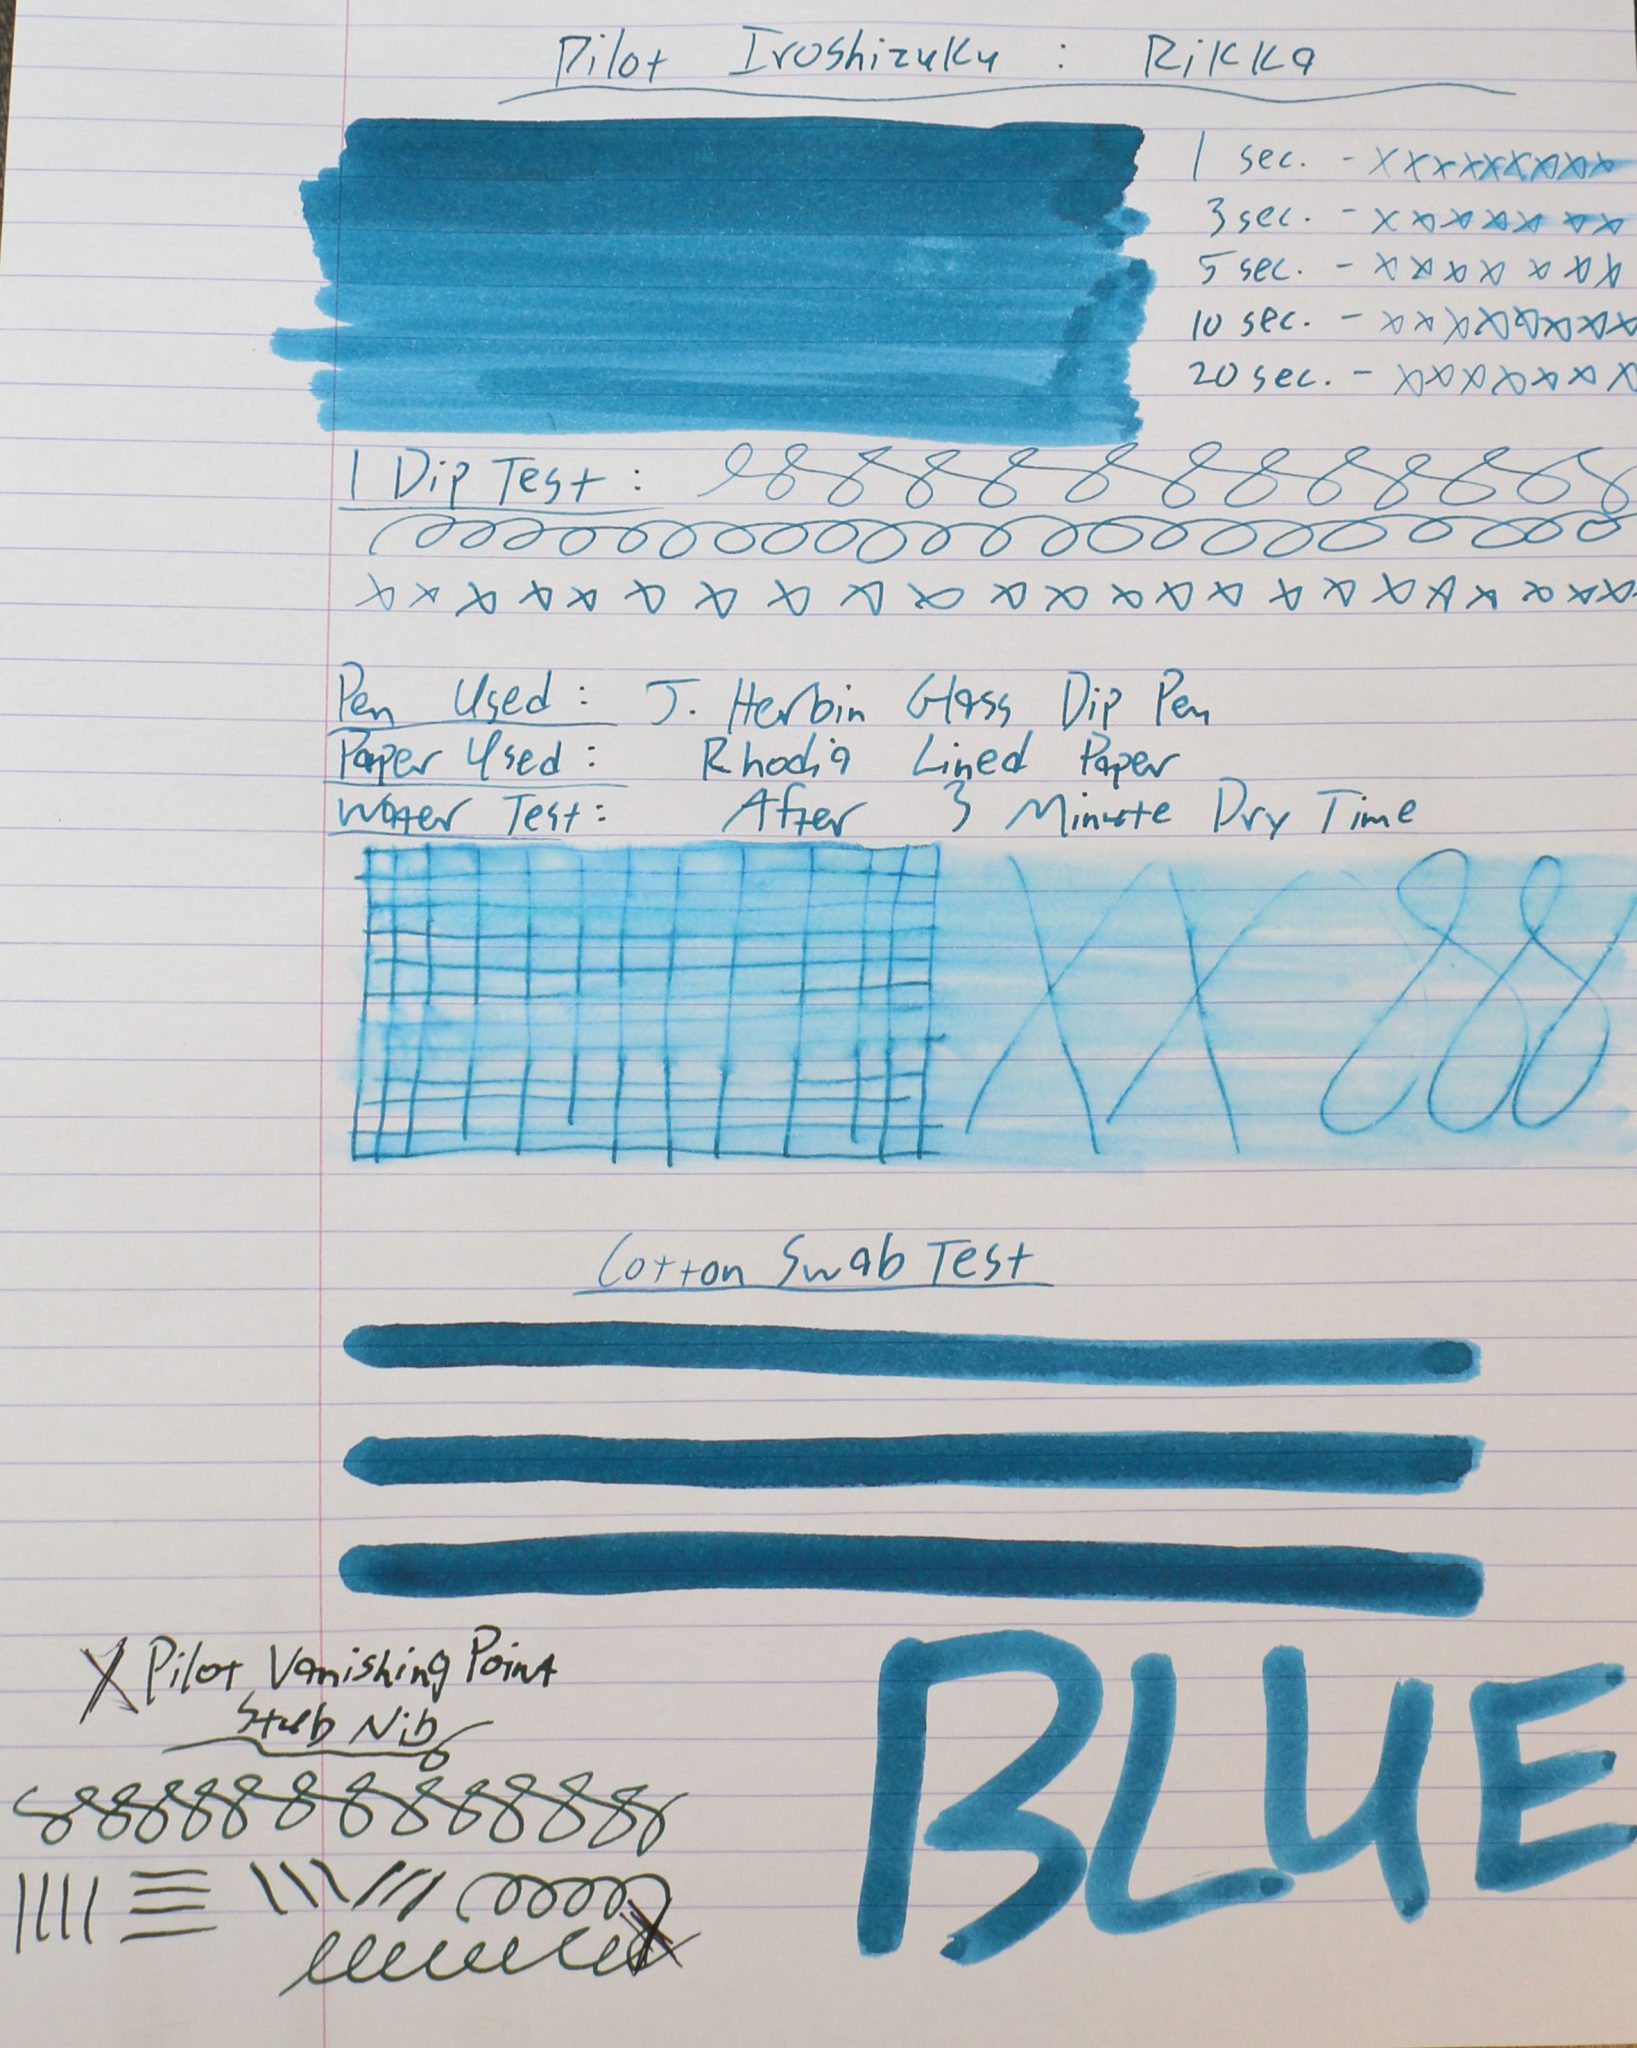 Pilot Iroshizuku : Rikka
1 sec. - xxxxxxxxx
3 sec. - xxxxxxxx
5 sec. - xxxxxxx
10 sec. - xxxxxxxx
20 sec. - xxxxxxx
1 Dip Test :
Pen Used : J. Herbin Glass Dip Pen
Paper Used : Rhodia Lined Paper
Water Test : After 3 Minute Dry Time
XX
Cotton Swab Test
X Pilot Vanishing Point
Stub Nib
BLUE